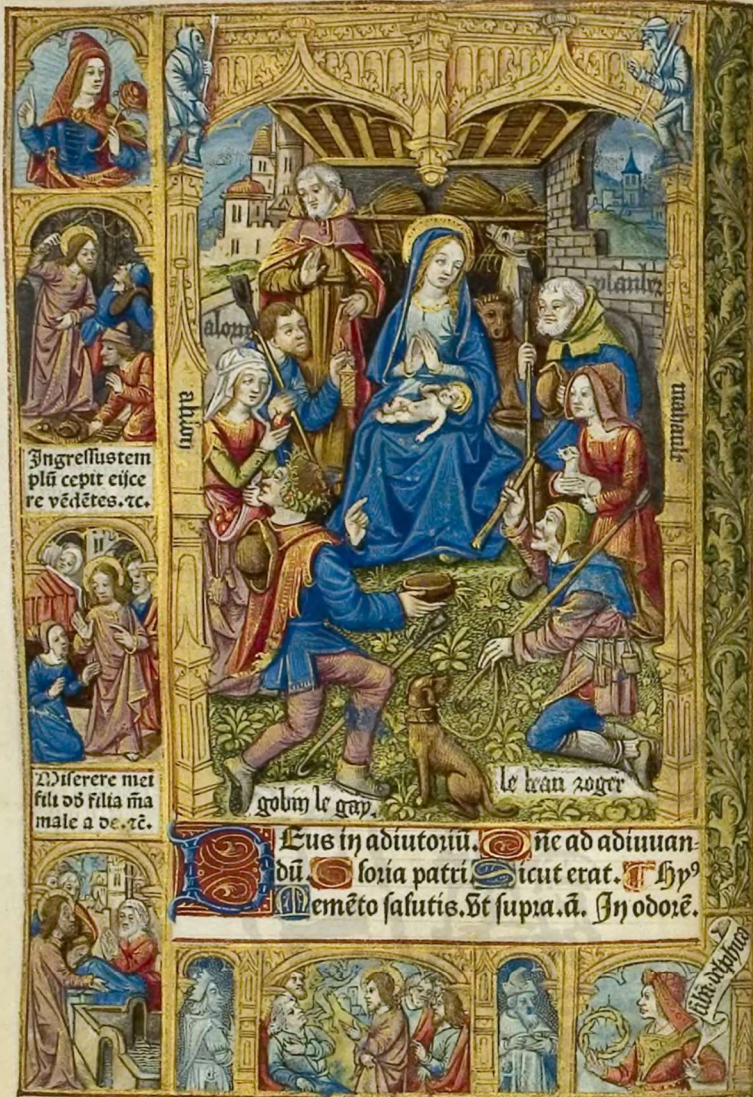 Ingressus tem
plū cepit eijce
re vēdētes.⁊c.
Miserere mei
fili dd filia m̄a
male a de.⁊c̄.
aloris
alison
planles
mahault
gobin le gay.
le beau roger
DEus in adiutoriū. One ad adiuuan=
dū. Gloria patri. Sicut erat. Thyꝰ
Memēto salutis. Vt supra. ā. In odorē.